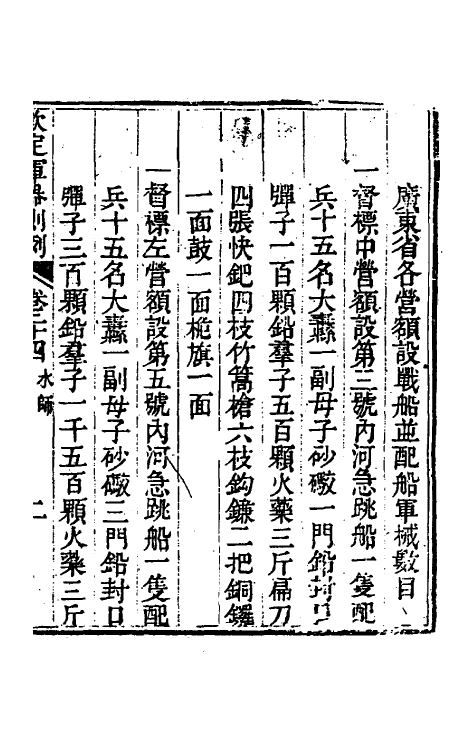 廣東省各營額設戰船並配船軍械數目
一督標中營額設第三號內河急跳船一隻配
兵十五名大纛一副母子砂礮一門鉛封口
彈子一百顆鉛羣子五百顆火藥三斤扁刀
四張快鈀四枝竹篙槍六枝鈎鐮二把銅鑼
一面鼓一面桅旗一面
一督標左營額設第五號內河急跳船一隻配
兵十五名大纛一副母子砂礮三門鉛封口
彈子三百顆鉛羣子一千五百顆火藥三斤
欽定軍器則例
卷二十四 水師
二